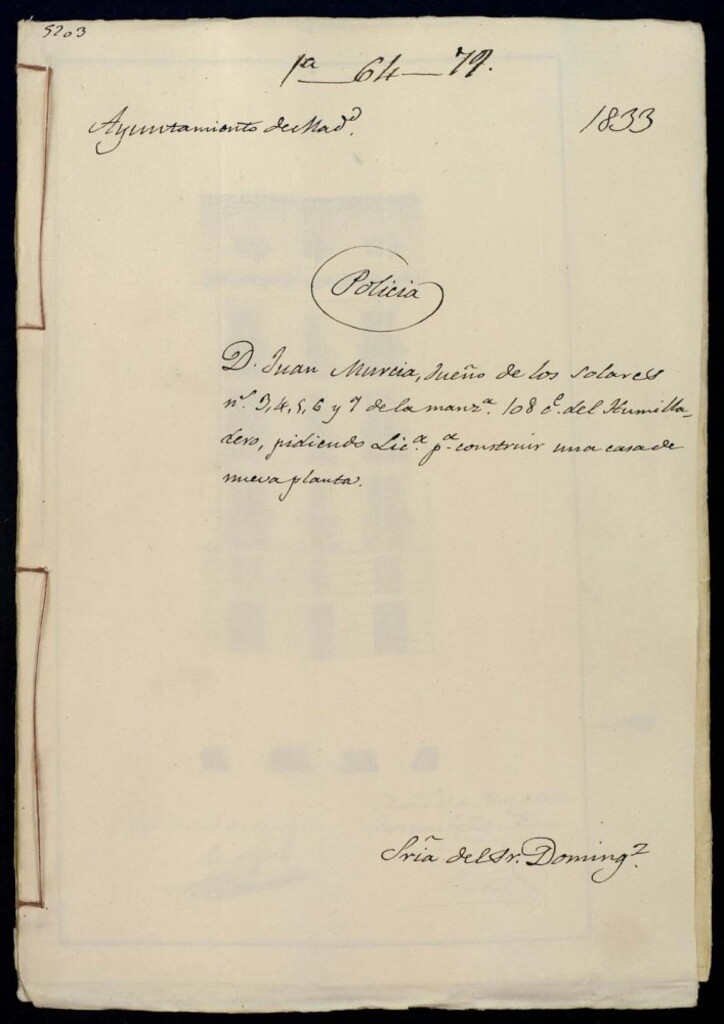 5203
1ª 64-79.
Ayuntamiento de Madᵈ. 1833
Policia
D. Juan Murcia, dueño de los solares
nˢ. 3, 4, 5, 6 y 7 de la manzª. 108 cᵉ. del Humilla-
dero, pidiendo Licª. pª. construir una casa de
nueva planta.
Sria del Sr. Domingᶻ.